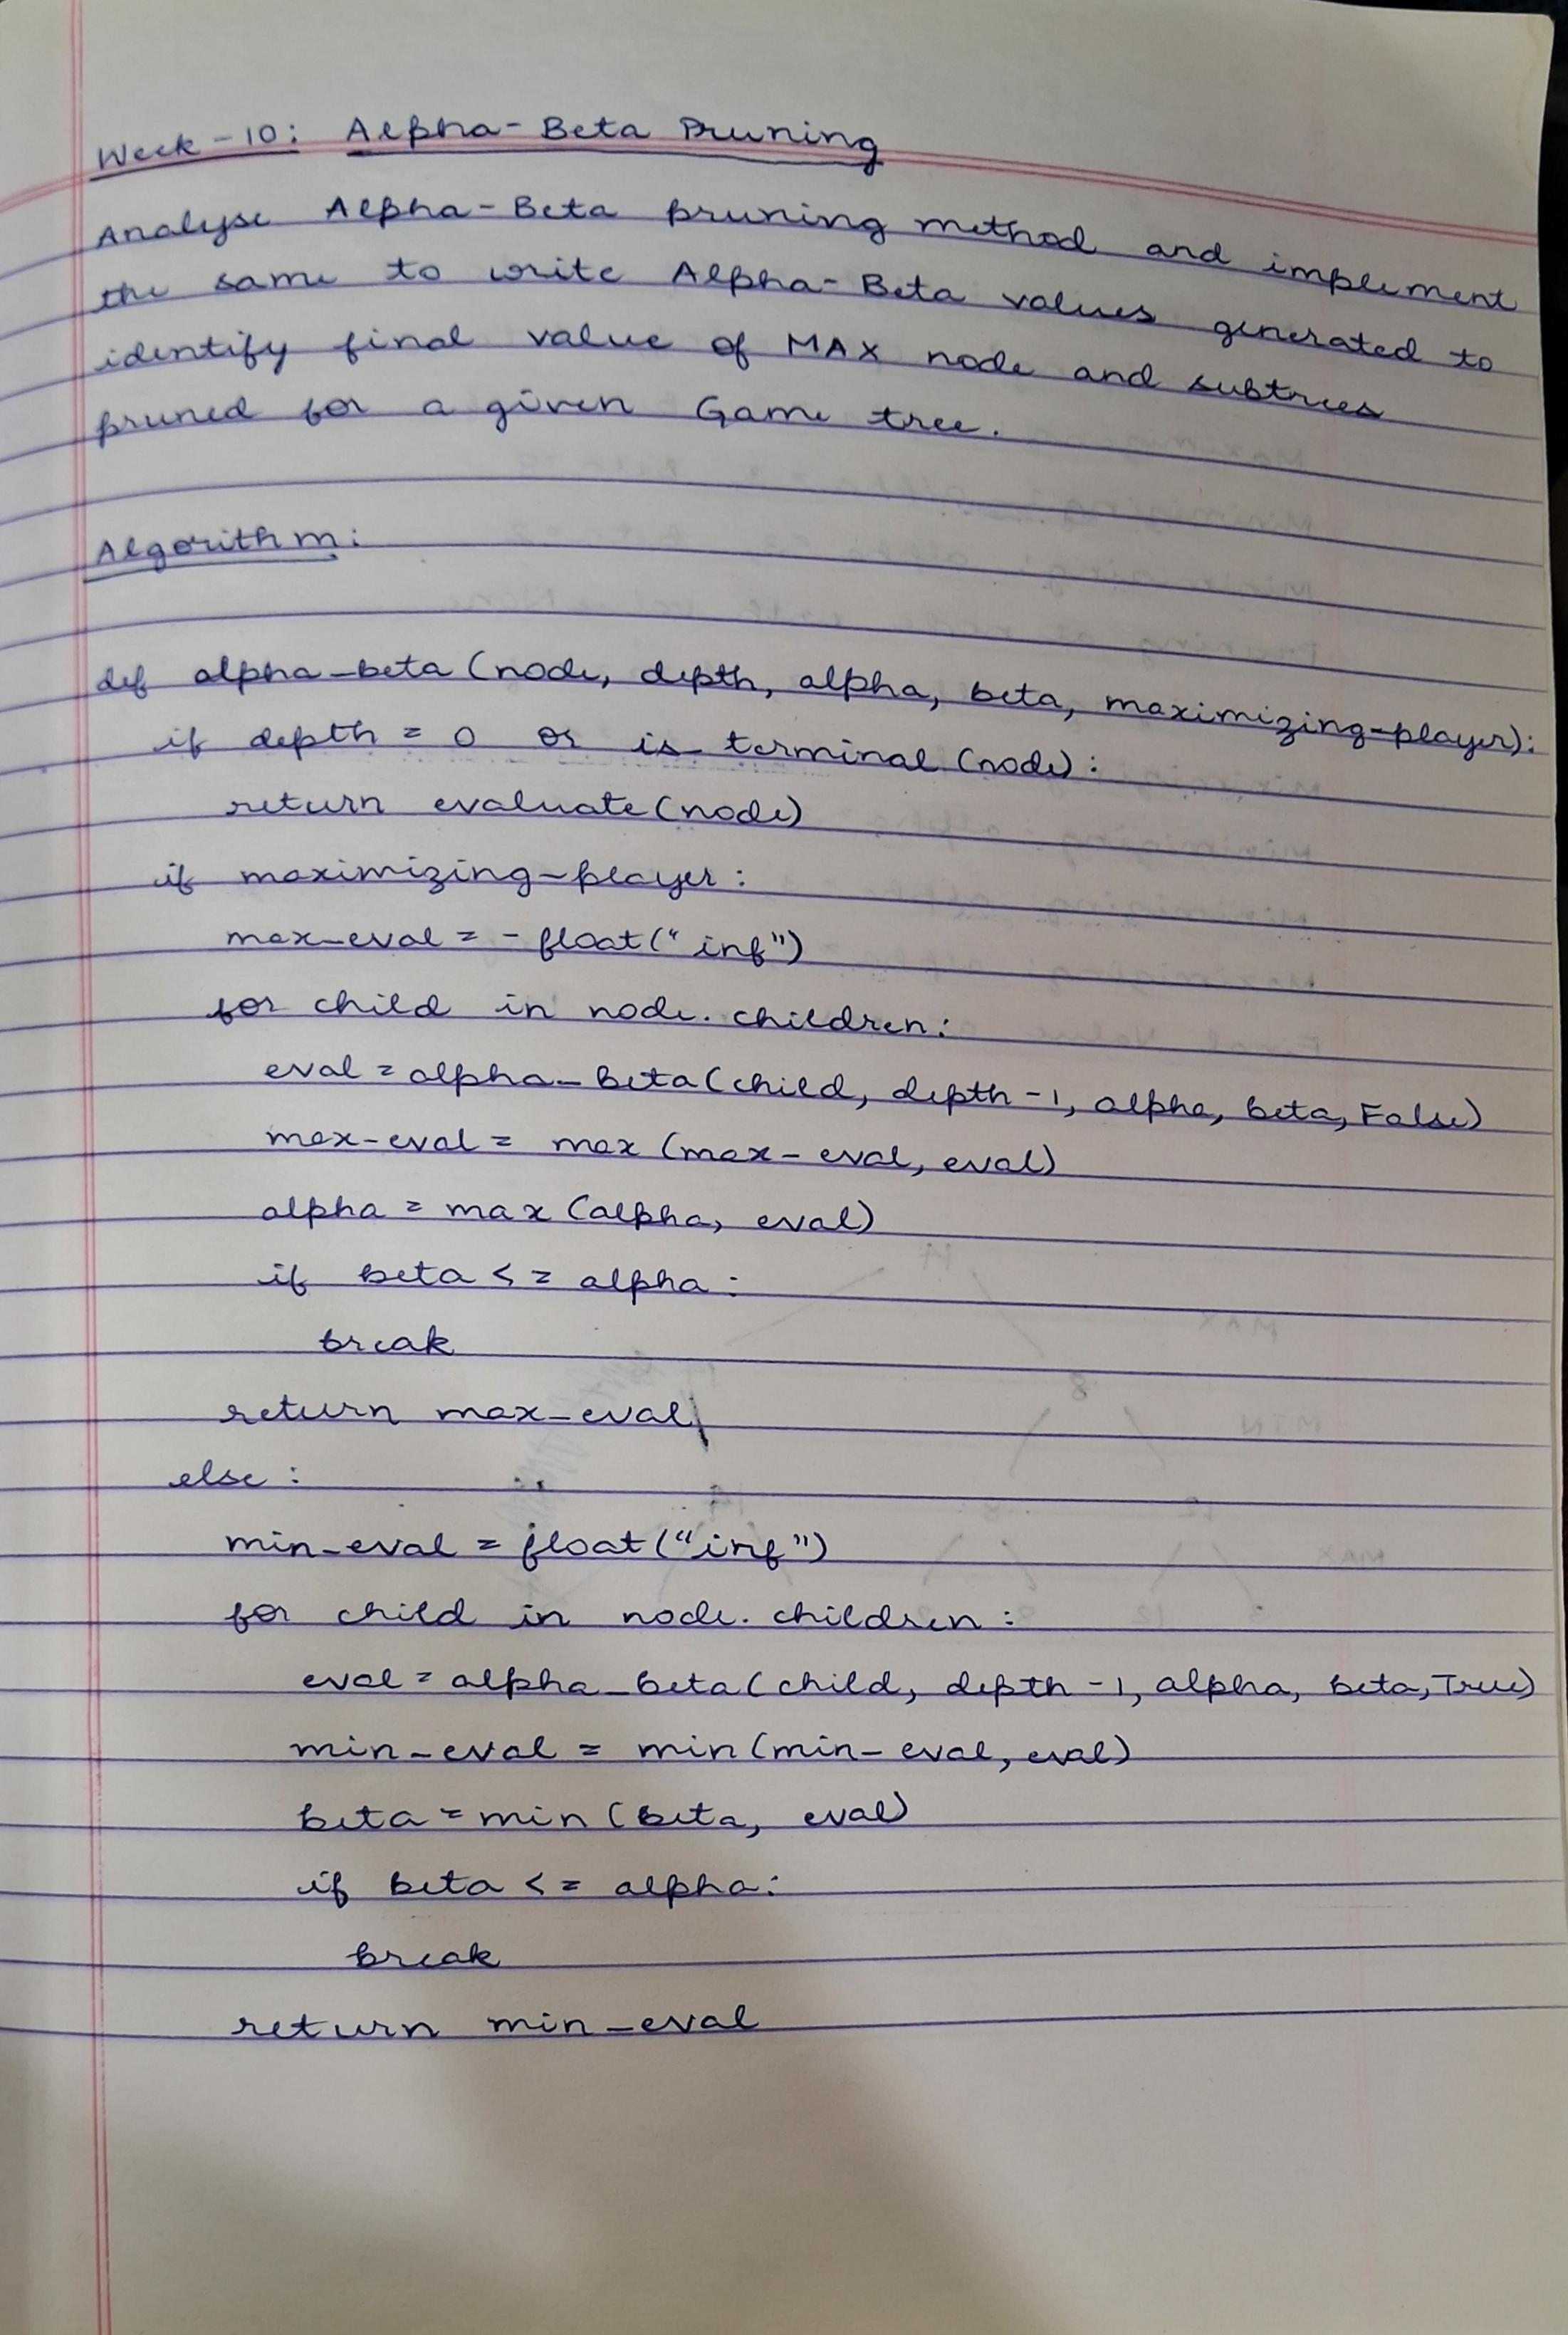 Week-10: Alpha-Beta Pruning
Analyse Alpha-Beta pruning method and implement
the same to write Alpha-Beta values generated to
identify final value of MAX node and subtrees
pruned for a given Game tree.
Algorithm:
def alpha_beta (node, depth, alpha, beta, maximizing-player):
if depth = 0 or is_terminal (node):
return evaluate (node)
if maximizing-player:
max_eval = - float("inf")
for child in node.children:
eval = alpha_beta(child, depth-1, alpha, beta, False)
max-eval = max (max-eval, eval)
alpha = max (alpha, eval)
if beta <= alpha:
break
return max_eval
else:
min_eval = float("inf")
for child in node.children:
eval = alpha_beta(child, depth-1, alpha, beta, True)
min_eval = min(min_eval, eval)
beta = min (beta, eval)
if beta <= alpha:
break
return min_eval